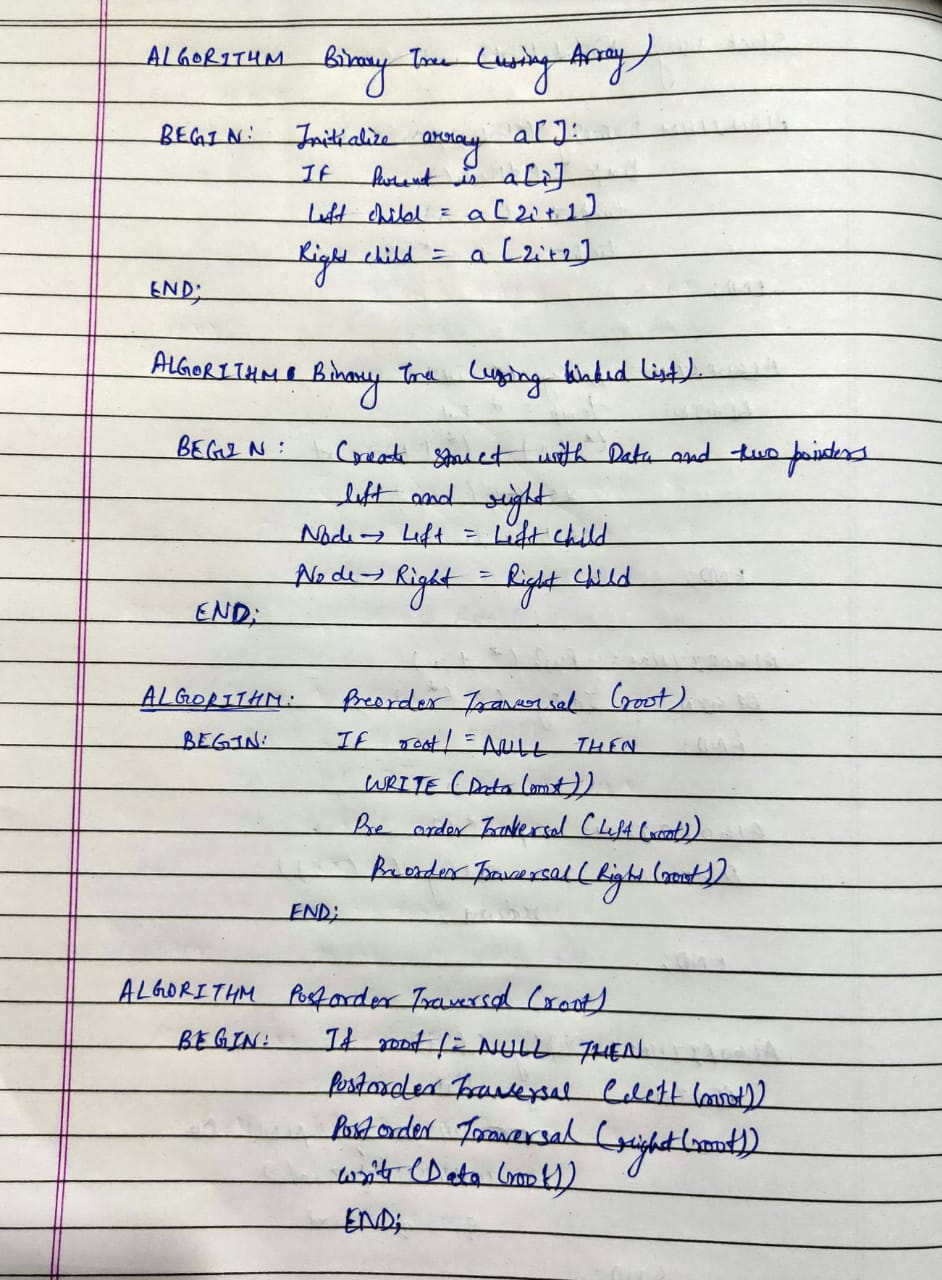 ALGORITHM Binary Tree (using Array)
BEGIN: Initialize array a[]:
If Parent is a[i]
Left child = a[2i+1]
Right child = a[2i+2]
END;
ALGORITHM Binary Tree (using linked list).
BEGIN: Create struct with Data and two pointers
left and right
Node → Left = Left child
Node → Right = Right Child
END;
ALGORITHM: Preorder Traversal (root)
BEGIN: IF root != NULL THEN
WRITE (Data (root))
Pre order Traversal (Left (root))
Preorder Traversal (Right (root))
END;
ALGORITHM Postorder Traversal (root)
BEGIN: If root != NULL THEN
Postorder Traversal (left (root))
Post order Traversal (right (root))
write (Data (root))
END;